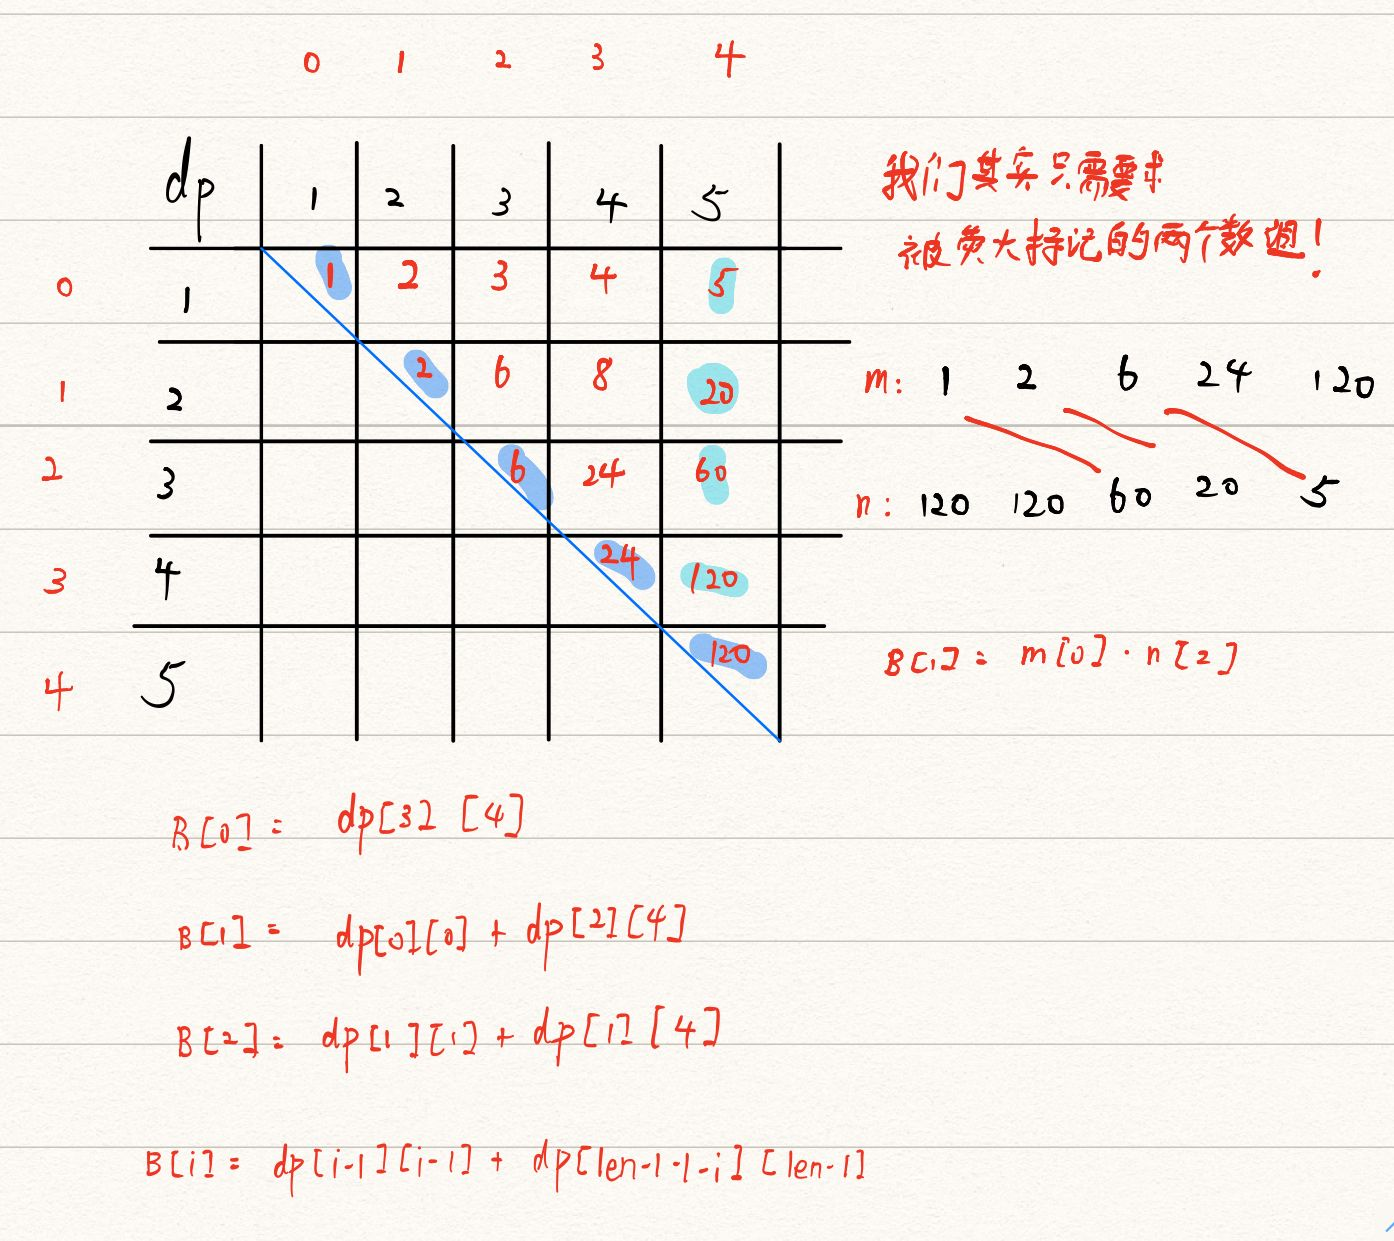 0 1 2 3 4
dp 1 2 3 4 5
0 1 1 2 3 4 5
1 2 2 6 8 20
2 3 6 24 60
3 4 24 120
4 5 120
我们其实只需要求
被标记的两个数!
m: 1 2 6 24 120
n: 120 120 60 20 5
B[1] = m[0] · n[2]
B[0] = dp[3] [4]
B[1] = dp[0][0] + dp[2][4]
B[2] = dp[1][1] + dp[1][4]
B[i] = dp[i-1][i-1] + dp[len-1-1-i][len-1]